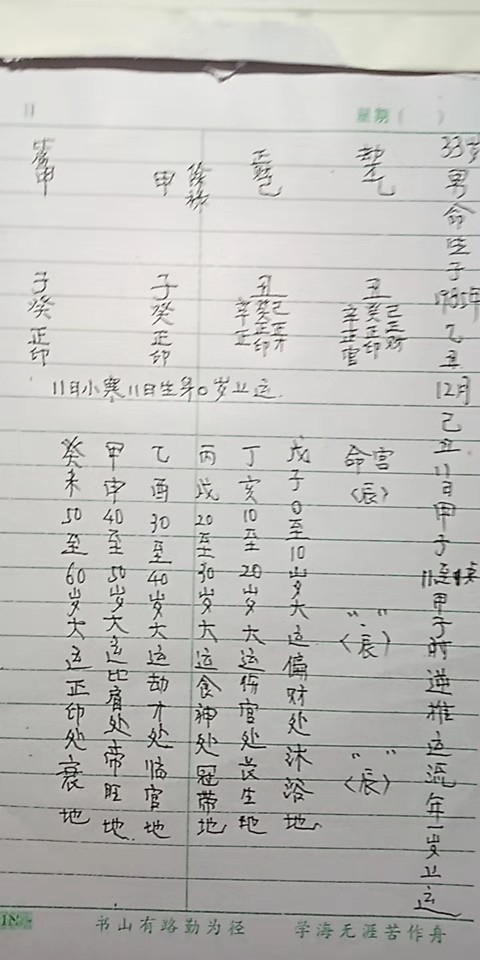 星期（ ）
33岁男命生于1985年乙丑12月己丑11日甲子11至1点甲子时逆推运流年一岁上运
劫才乙
丑
己正财
癸正印
辛正官
正财己
丑
己正才
癸正印
辛正
甲
子
癸
正印
甲
子
癸
正印
11日小寒11日生算0岁上运.
命宫〈辰〉
〃〈辰〉
〃〈辰〉
戊子0至10岁大运偏财处沐浴地
丁亥10至20岁大运伤官处长生地
丙戌20至30岁大运食神处冠带地
乙酉30至40岁大运劫才处临官地
甲申40至50岁大运比肩处帝旺地.
癸未50至60岁大运正印处衰地
书山有路勤为径 学海无涯苦作舟